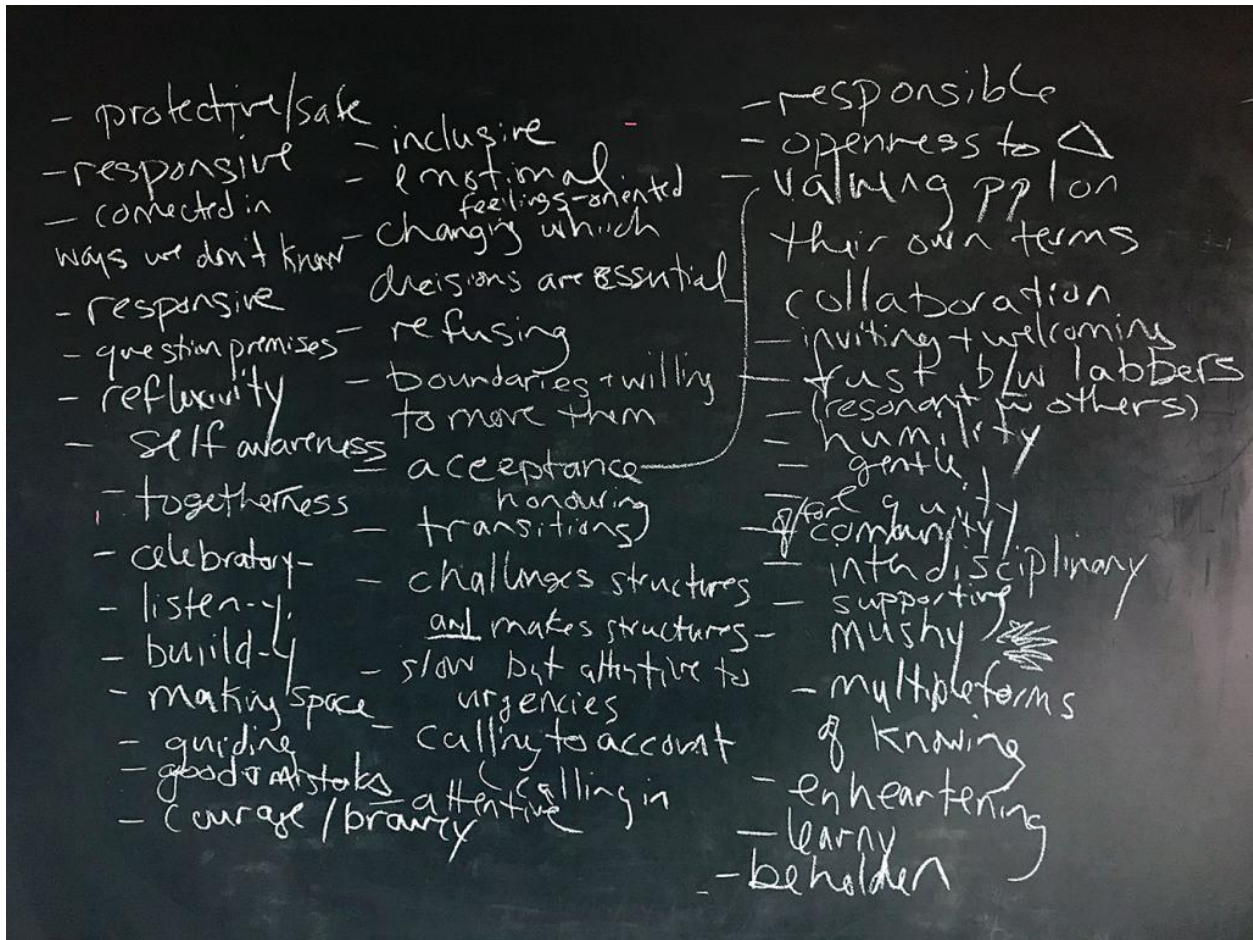 - protective/safe
- responsive
- connected in
ways we don't know
- responsive
- question premises
- reflexivity
- self awareness
- togetherness
- celebratory-
- listen-y
- build-y
- making space
- guiding
- good + mistakes
- courage/bravery
- inclusive
- emotional
feelings-oriented
- changing which
decisions are essential
- refusing
- boundaries + willing
to move them
- acceptance
honouring
- transitions
- challenges structures
and makes structures-
- slow but attentive to
urgencies
- calling to account
(calling in
- attentive
- responsible
- openness to △
- valuing ppl on
their own terms
collaboration
- inviting + welcoming
- trust b/w labbers
- (resonant w others)
- humility
- gentle
- equity
- of/for community
- interdisciplinary
- supporting
- mushy
- multiple forms
of knowing
- enheartening
- learny
- beholden